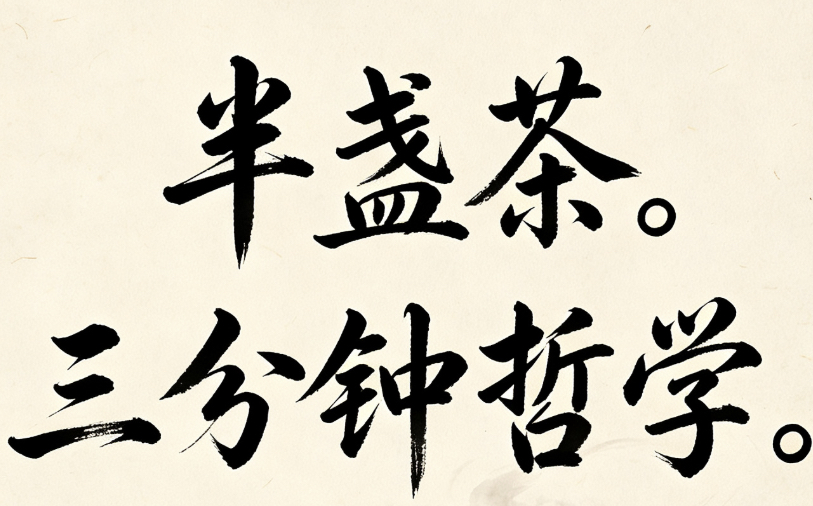 半盏茶。
三分钟哲学。